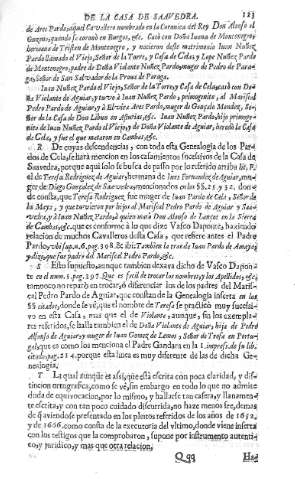 DE LA CASA DE SAAVEDRA. 123
de Ares Pardo, siguel Cavallero nombrado en la Coronica del Rey Don Alonso el
Onzeno, quando se coronò en Burgos, &c. Casò con Doña Juana de Montenegro,
hermana de Tristan de Montenegro, y nacieron deste matrimonio Iuan Nuñez
Pardo llamado el Viejo, Señor de la Torre, y Casa de Cela, y Lope Nuñez Pardo
de Montenegro, padre de Doña Violante Nuñez Pardo, muger de Pedro de Parga,
Señor de San Salvador de la Prova de Paraga.
Iuan Nuñez Pardo el Viejo, Señor de la Torre, y Casa de Cela, casò con Doña
Violante de Aguiar, y tuvo à Iuan Nuñez Pardo, primogenito, al Marifcal
Pedro Pardo de Aguiar, y à Elvira Ares Pardo, muger de Gonçalo Mendez, Señor
de la Casa de Don Libun en Asturias, &c. Iuan Nuñez Pardo, hijo primogenito
de Iuan Nuñez Pardo el Viejo, y de Doña Violante de Aguiar, heredò la Casa
de Cela, y fue el que mataron en Cambas, &c.
R De cuyas descendencias, con toda esta Genealogia de los Pardos
de Cela, se hará mencion en los casamientos sucessivos de la Casa de
Saavedra, porque aqui solo se busca de passo por lo referido arriba
el de Teresa Rodriguez de Aguiar, hermana de Iuan Fernandez de Aguiar, muger
de Diego Gonçalez de Saavedra, mencionados en los §§. 25. y 32. donde
consta, que Teresa Rodriguez, fue muger de Iuan Pardo de Cela, Señor de
las Mayas, y que tuvieron por hijos al Marifcal Pedro Pardo de Aguiar y Saavedra,
y à Iuan Nuñez Pardo, à quien matò Don Alonso de Lanços en la Sierra
de Cambas, &c. que es conforme à lo que dize Vasco Daponte,
relacion de muchos Cavalleros desta Casa, que refiere antes el Padre
Pardo, vbi sup. n. 6. pag. 398. & ibi: Tambien la trae de Iuan Pardo de Amayo,
y dize, que fue padre del Marifcal Pedro Pardo, &c.
S Esto supuesto, aunque tambien dexara dicho de Vasco Daponte
en el num. 1. pag. 397. Que es facil de trocar los nombres, y los Apellidos, &c.
tampoco no reparò en trocar, ò diferenciar los de los padres del Marifcal
Pedro Pardo de Aguiar, que constan de la Genealogia inserta en los
§§ citados, donde se vè, que el nombre de Teresa se practicò muy sucessivo
en esta Casa, mas que el de Violante, aunque, sin los exemplares
referidos, se halla tambien el de Doña Violante de Aguiar, hija de Pedro
Alfonso de Aguiar, y muger de Iuan Gomez de Lamas, Señor de Tesea en Portugal,
que es como la menciona el Padre Gandara en la 1. impress. de su lib.
citado, pag. 214. porque esta linea es muy diferente de la de dicha Genealogia.
T La qual aunque es assi, que està escrita con poca claridad, y distincion
ortografica, como se vè, sin embargo en todo lo que no admite
duda de equivocacion, por lo mismo, y hallarse tan casera, y llanamente
escrita, y con tan poco cuidado discurrida, no haze menos fee, demàs
de q̃ aviendose presentado en los plantos referidos de los años de 1652,
y de 1666. como consta de la executoria del vltimo, donde viene inserta
con los testigos que la comprobaron, supone por instrumento autentico,
y juridico, y mas que otra relacion.
Qqq
Ha-